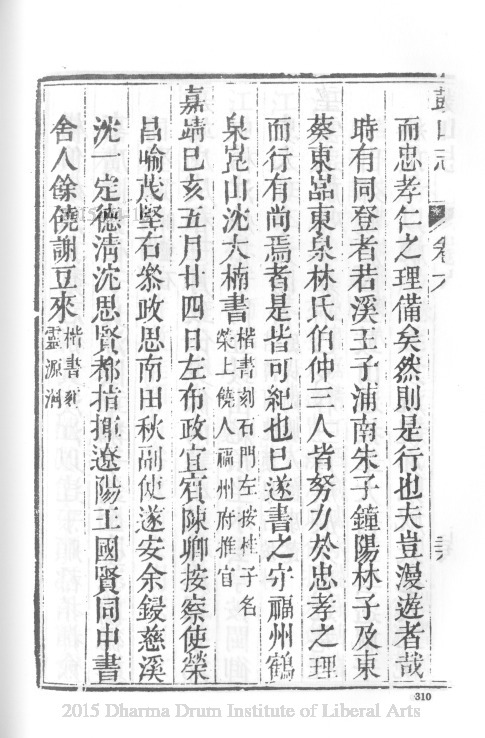 鼓山志 卷六
而忠孝仁之理備矣然則是行也夫豈漫遊者哉
時有同登者若溪王子浦南朱子鐘陽林子及東
蔡東喦東泉林氏伯仲三人皆努力於忠孝之理
而行有尚焉者是皆可紀也已遂書之守福州鶴
泉崑山沈大楠書
楷書刻石門左按桂子名
荣上饒人福州府推官
嘉靖己亥五月廿四日左布政宜賓陳卿按察使榮
昌喻茂堅右叅政思南田秋副使遂安余鍰慈溪
沈一定德清沈思賢都指揮遼陽王國賢同中書
舍人餘僥謝豆來
楷書刻
靈源洞
310
2015 Dharma Drum Institute of Liberal Arts